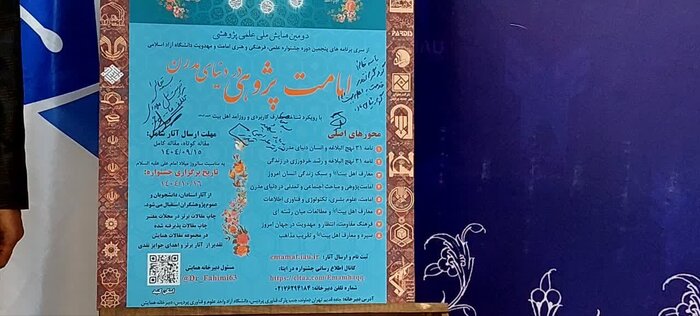 دومین همایش ملی علمی پژوهشی
از سری برنامه های پنجمین دوره جشنواره علمی، فرهنگی و هنری امامت و مهدویت دانشگاه آزاد اسلامی
امامت پژوهی در دنیای مدرن
با رویکرد معارف کاربردی و روزآمد اهل بیت
محورهای اصلی
نامه ۳۱ نهج البلاغه و انسان دنیای مدرن
نامه ۳۱ نهج البلاغه و رشد خردورزی در زندگی
معارف اهل بیت و سبک زندگی انسان امروز
امامت پژوهی و مباحث اجتماعی و تمدنی در دنیای مدرن
امامت، علوم بشری، تکنولوژی و فناوری اطلاعات
معارف اهل بیت و مطالعات میان رشته ای
فرهنگ مقاومت، انتظار و مهدویت در جهان امروز
سیره و معارف اهل بیت و تقریب مذاهب
مهلت ارسال آثار شامل:
مقاله کوتاه، مقاله کامل
۱۴۰۴/۰۹/۱۵
به مناسبت سالروز میلاد امام علی علیه السلام
تاریخ برگزاری جشنواره:
۱۴۰۴/۱۰/۱۶
از آثار استادان، دانشجویان و
عموم پژوهشگران استقبال می‌شود.
چاپ مقالات برتر در مجلات معتبر
چاپ مقالات پذیرفته شده
در مجموعه مقالات همایش
تقدیر از آثار برتر و اهدای جوایز نقدی
ثبت نام و ارسال آثار: emamat.iau.ir
کانال اطلاع رسانی جشنواره در ایتا:
https://eitaa.com/Emamhaqq
شماره تلفن دبیرخانه: ۰۲۱۷۶۲۹۴۱۸۴
مسئول دبیرخانه همایش
@Dr_Fahimi63
آدرس دبیرخانه: جاده قدیم تهران دماوند، جنب پارک فناوری پردیس، دانشگاه آزاد واحد علوم و فناوری پردیس، دبیرخانه همایش
PARDIS